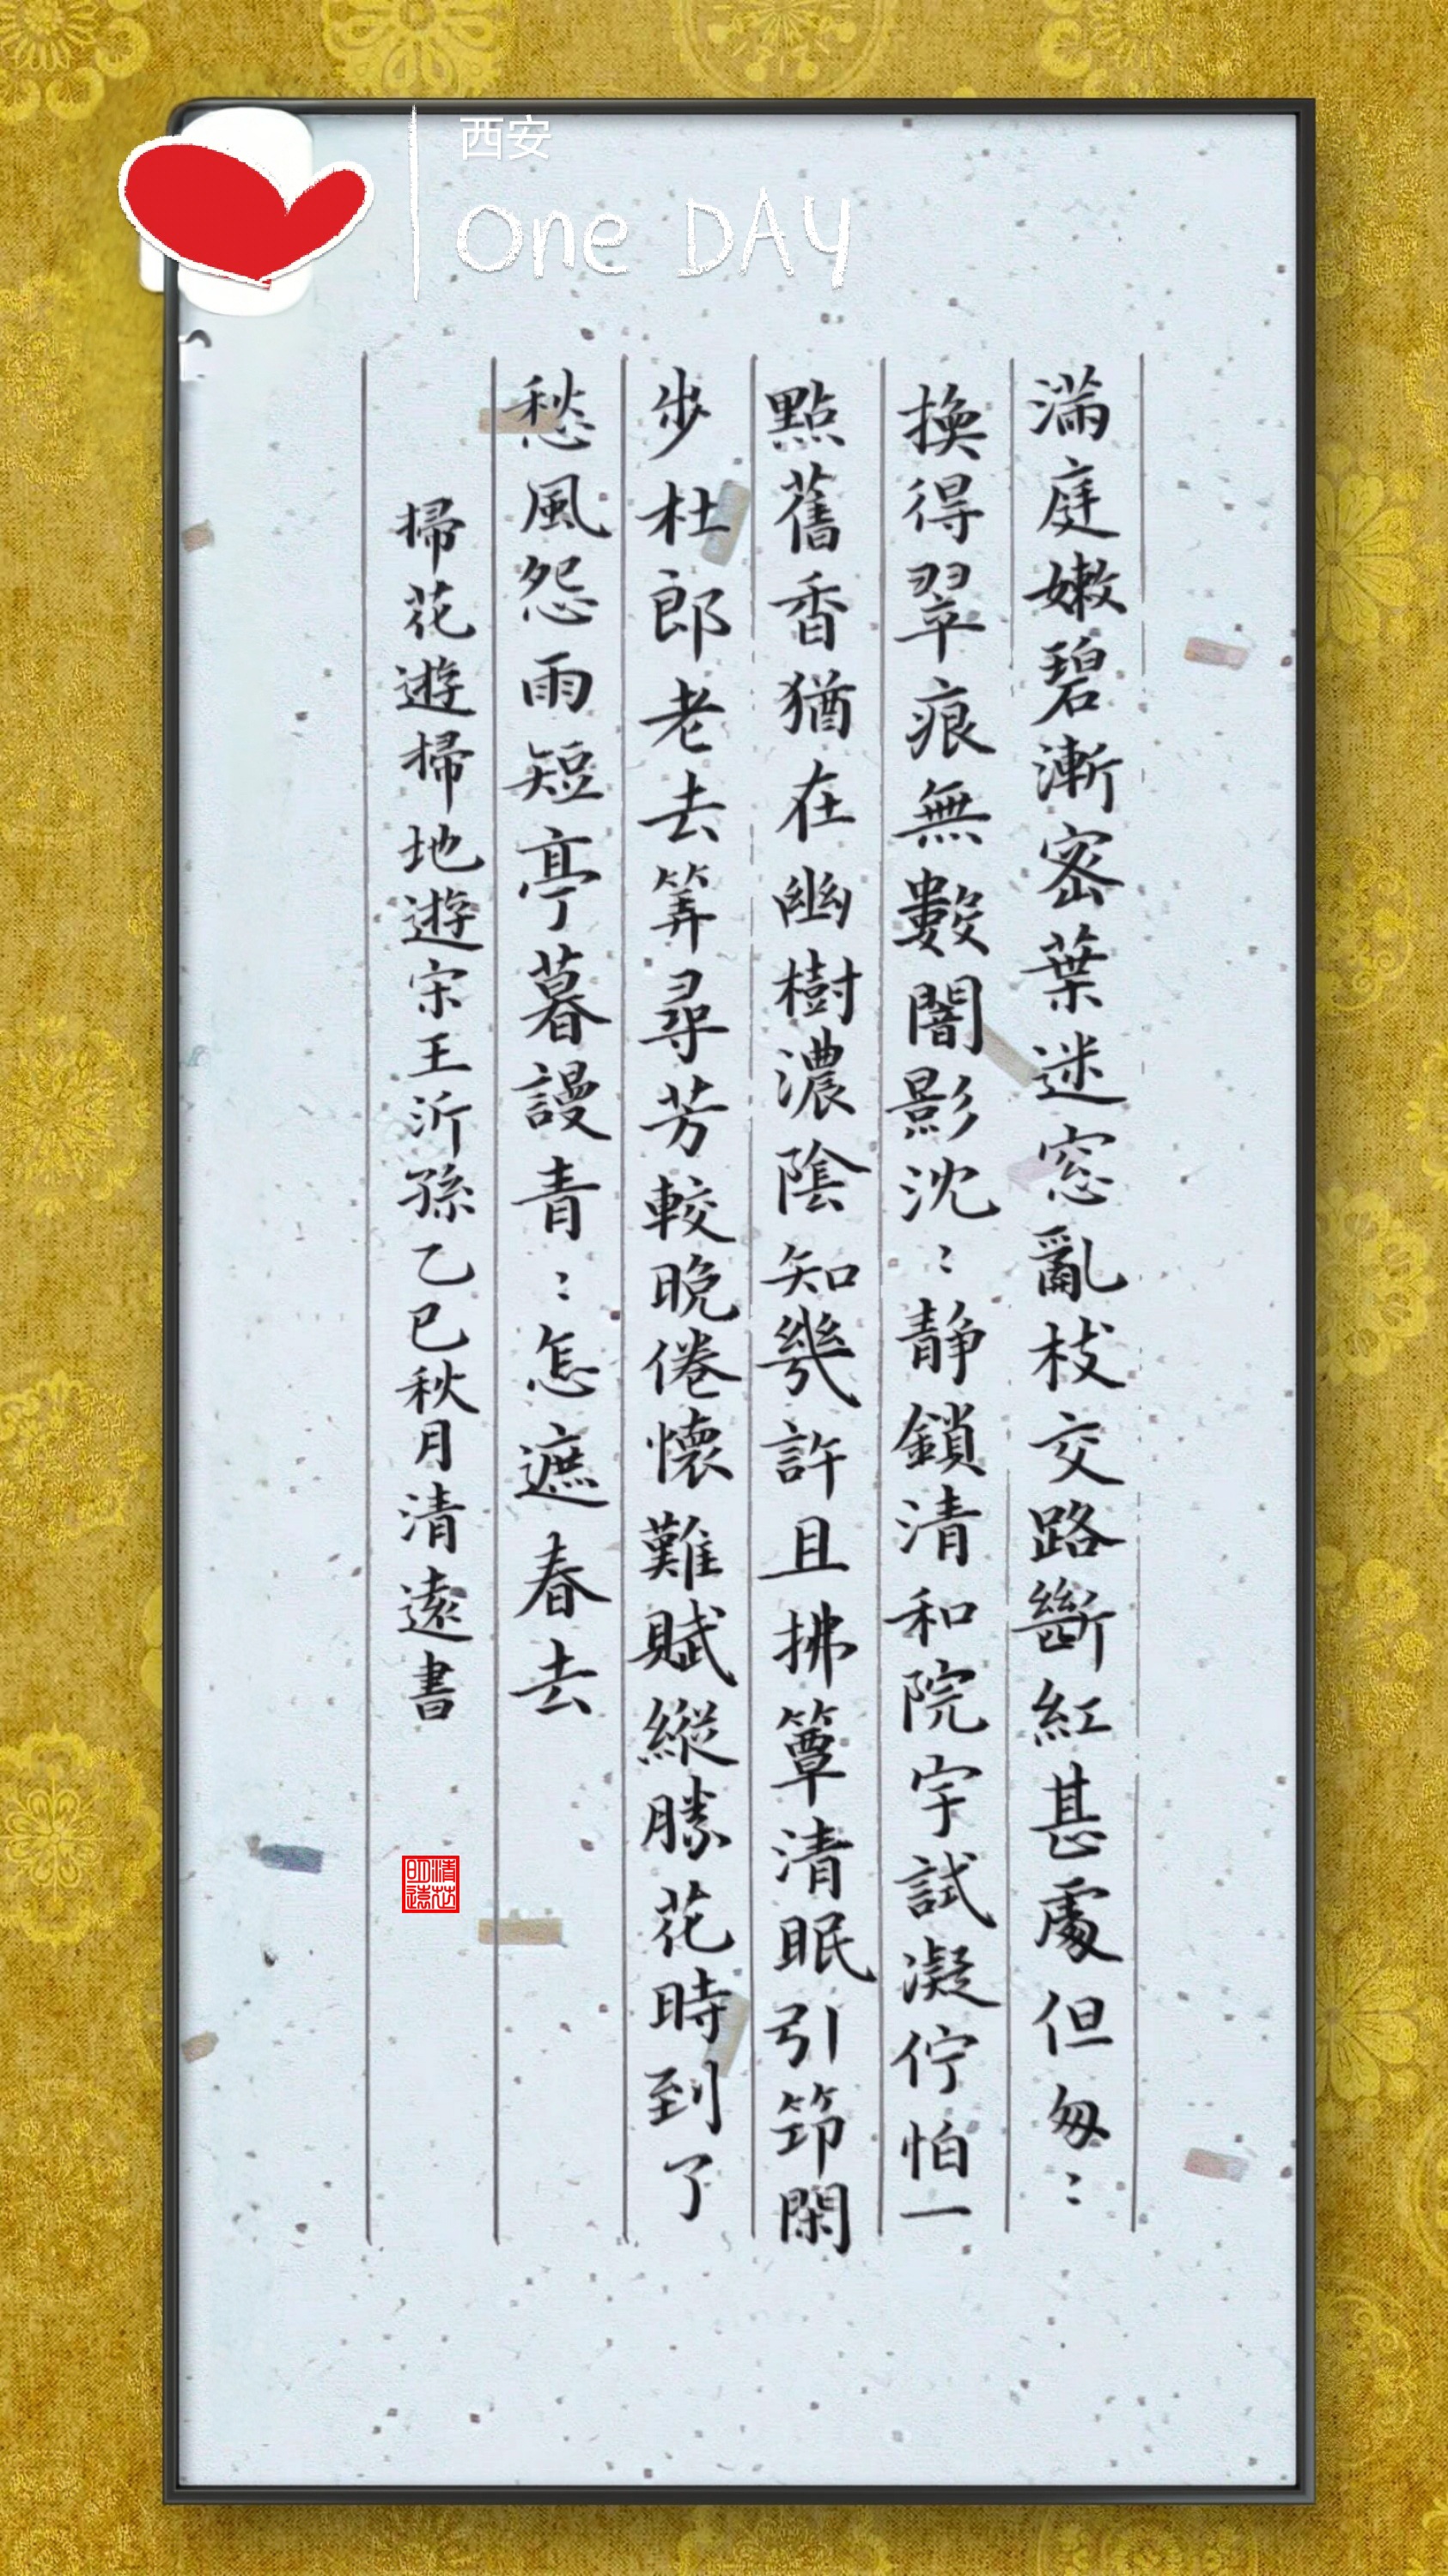 西安
One DAY
滿庭嫩碧漸密葉迷窓亂枝交路斷紅甚處但匆：
換得翠痕無數闇影沈：靜鎖清和院宇試凝佇怕一
點舊香猶在幽樹濃陰知幾許且拂簟清眠引筇閑
步杜郎老去筭尋芳較晩倦懷難賦縱勝花時到了
愁風怨雨短亭暮謾青：怎遮春去
掃花遊掃地遊宋王沂孫乙巳秋月清遠書